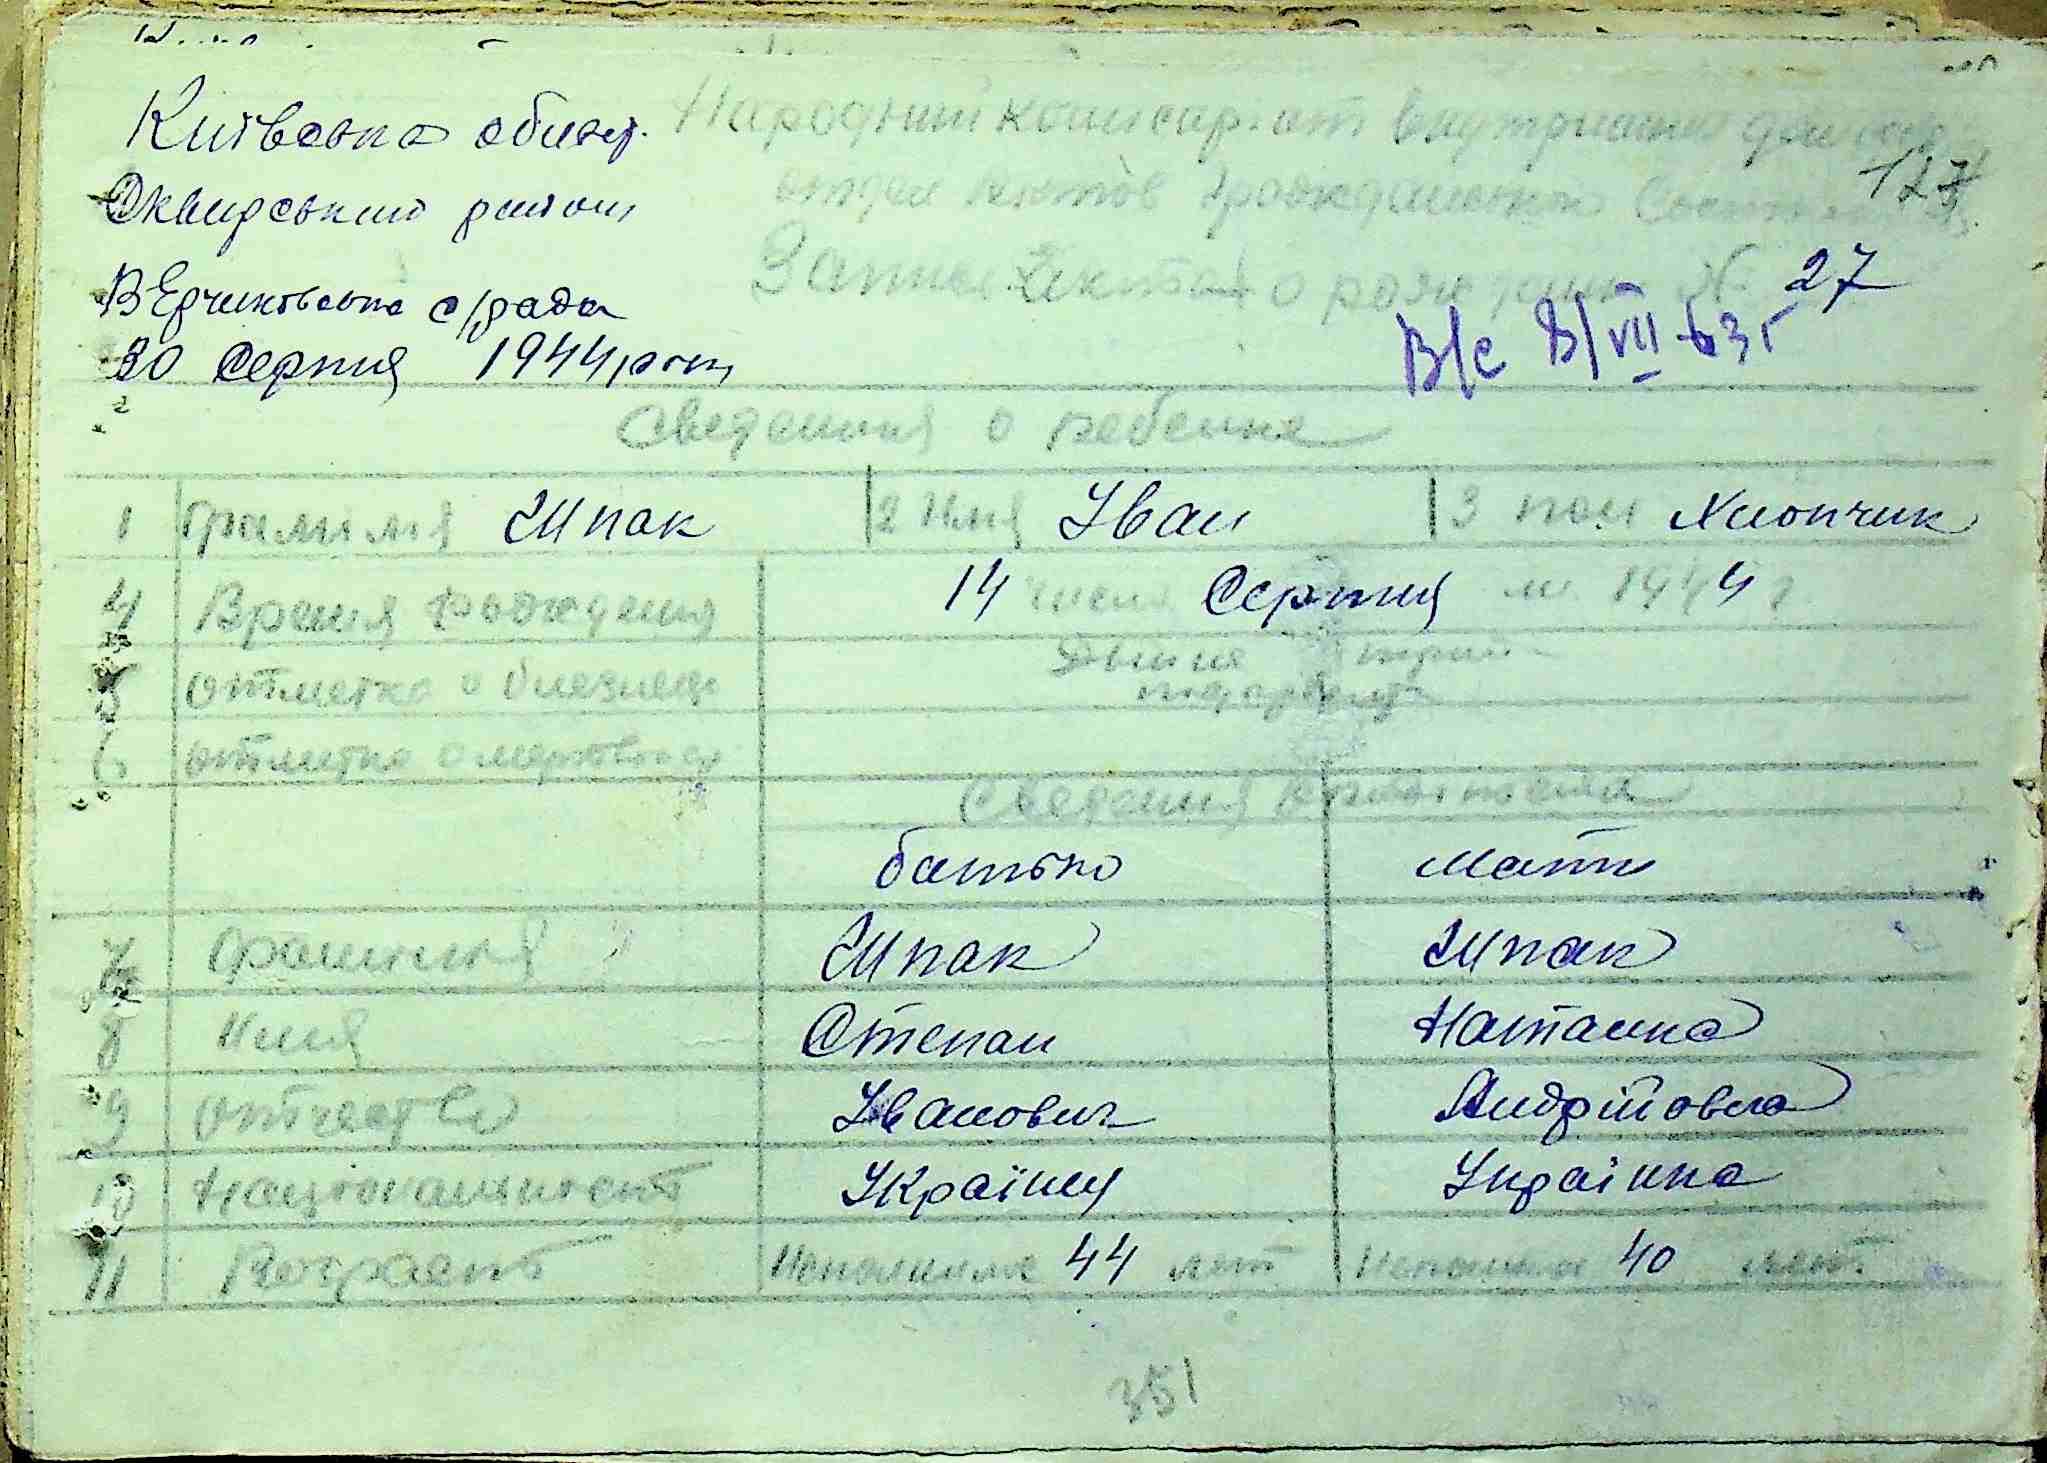 Київська област.
Народний комисариат внутрених дел
127
Сквирський район
отдел актов гражданского Состояния
ВЕрчиковська с/рада
Запись Акта о рождении № 27
30 Серпня 1944 рок
В/с 8/VII-63 г
Сведения о ребенке
1 Фамилия Шпак 2 Имя Іван 3 пол Хлопчик
4 Время рождения 14 числа Серпня м. 1944 г
5 отметка о близнец
6 отметка о мертвор
Сведения
батько мати
7 Фамилия Шпак Шпак
8 Имя Степан Наталка
9 отчество Іванович Андріївна
10 Национальност Українец Українка
11 Возраст Исполнилос 44 лет Исполнилос 40 лет
351